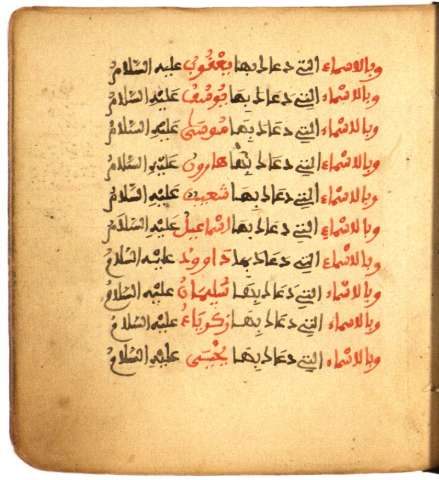 وبالاسماء التي دعاك بها يعقوب عليه السلام
وبالاسماء التي دعاك بها يوسف عليه السلام
وبالاسماء التي دعاك بها موسى عليه السلام
وبالاسماء التي دعاك بها هارون عليه السلام
وبالاسماء التي دعاك بها شعيب عليه السلام
وبالاسماء التي دعاك بها اسماعيل عليه السلام
وبالاسماء التي دعاك بها داوود عليه السلام
وبالاسماء التي دعاك بها سليمان عليه السلام
وبالاسماء التي دعاك بها زكرياء عليه السلام
وبالاسماء التي دعاك بها يحيى عليه السلام